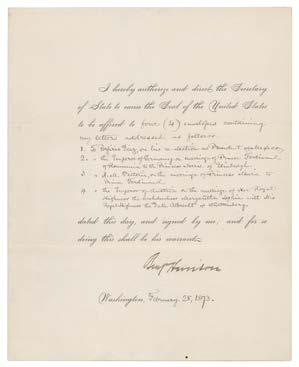 I hereby authorize and direct the Secretary
of State to cause the Seal of the United States
to be affixed to four (4) envelopes containing
my letter addressed as follows:
1. To Porfirio Diaz, on his re-election as President of Mexico,
2. " the Emperor of Germany on marriage of Prince Ferdinand
of Roumania to the Princess Marie of Edinburgh
3. " Victoria, on the marriage of Princess Marie to
Prince Ferdinand.
4. " the Emperor of Austria on the marriage of Her Royal
Highness the Archduchess Margaretha Sophia with His
Royal Highness the Duke Albrecht of Württemberg
dated this day, and signed by me; and for so
doing this shall be his warrant.
Benj Harrison
Washington, February 28, 1893.